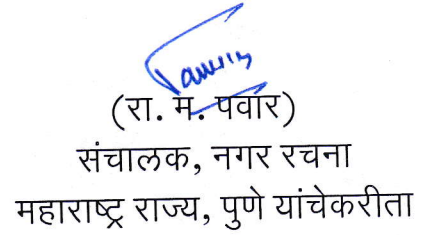 (रा. म. पवार)
संचालक, नगर रचना
महाराष्ट्र राज्य, पुणे यांचेकरीता